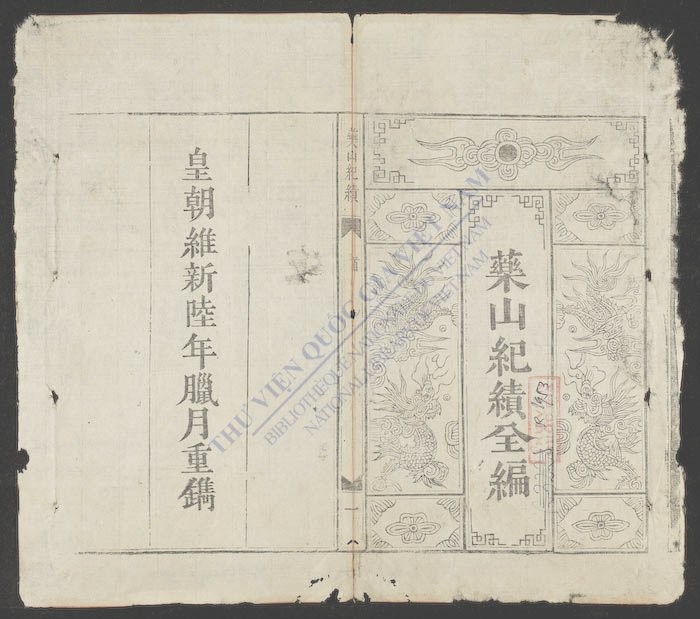 藥山紀績全編
R.1913
藥山紀績
首
一
皇朝維新陸年臘月重鐫
THƯ VIỆN QUỐC GIA VIỆT NAM
BIBLIOTHÈQUE NATIONALE DU VIETNAM
NATIONAL LIBRARY OF VIETNAM